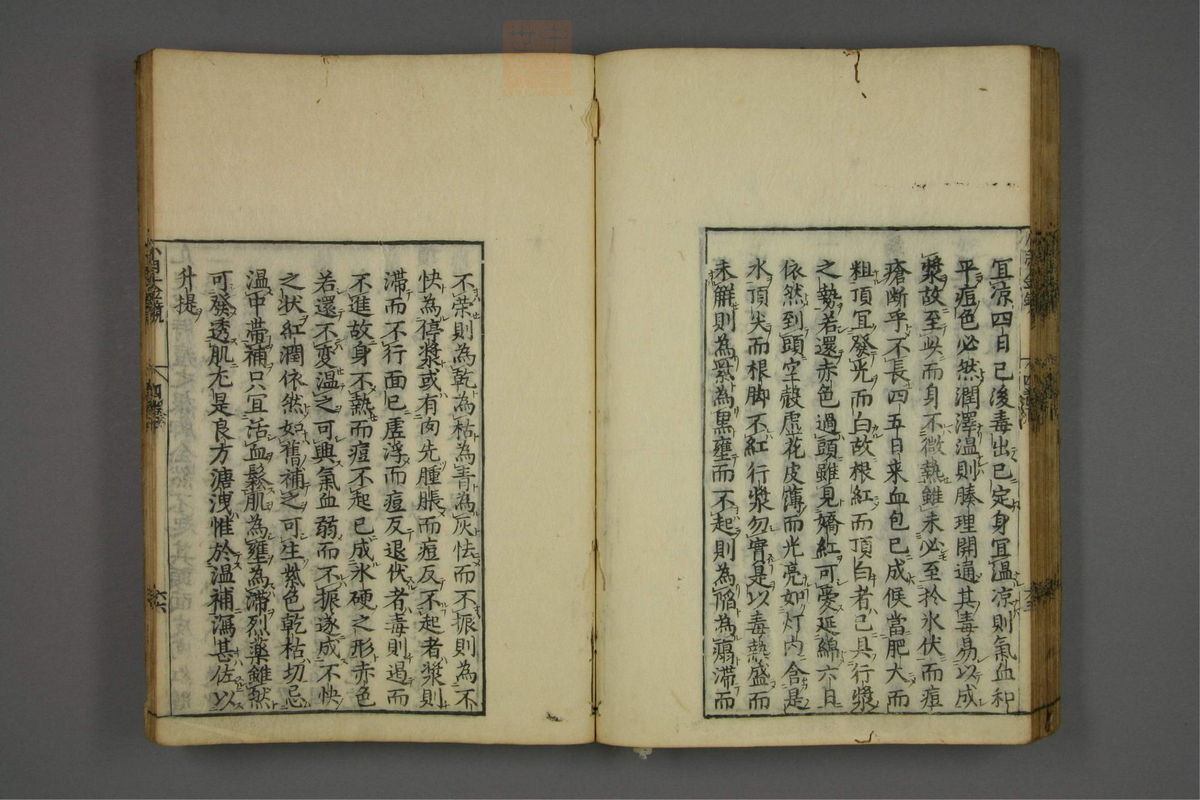 宜涼四日已後毒出已定身宜溫涼則氣血和
平痘色必然潤澤溫則腠理開通其毒易以成
漿故至此而身不微熱雖未必至於氷伏而痘
瘡断乎不長四五日来血包已成候當肥大而
粗頂宜發光而白故根紅而頂白者已具行漿
之勢若還赤色過頭雖見嬌紅可愛延綿六日
依然到頭空殼虛花皮薄而光亮如灯内含是
水頂尖而根脚不紅行漿勿實是以毒熱盛而
未解則為紫為黒壅而不起則為陷為塌滞而
不荣則為乾為枯為青為灰怯而不振則為不
快為停漿或有肉先腫脹而痘反不起者漿則
滞而不行面已虛浮而痘反退伏者毒則遏而
不進故身不熱而痘不起已成氷硬之形赤色
若還不变溫之可興氣血弱而不振遂成不快
之状紅潤依然如舊補之可生紫色乾枯切忌
溫中帯補只宜活血鬆肌為壅為滞烈藥雖然
可發透肌尢是良方溏洩惟於溫補瀉甚佐以
升提